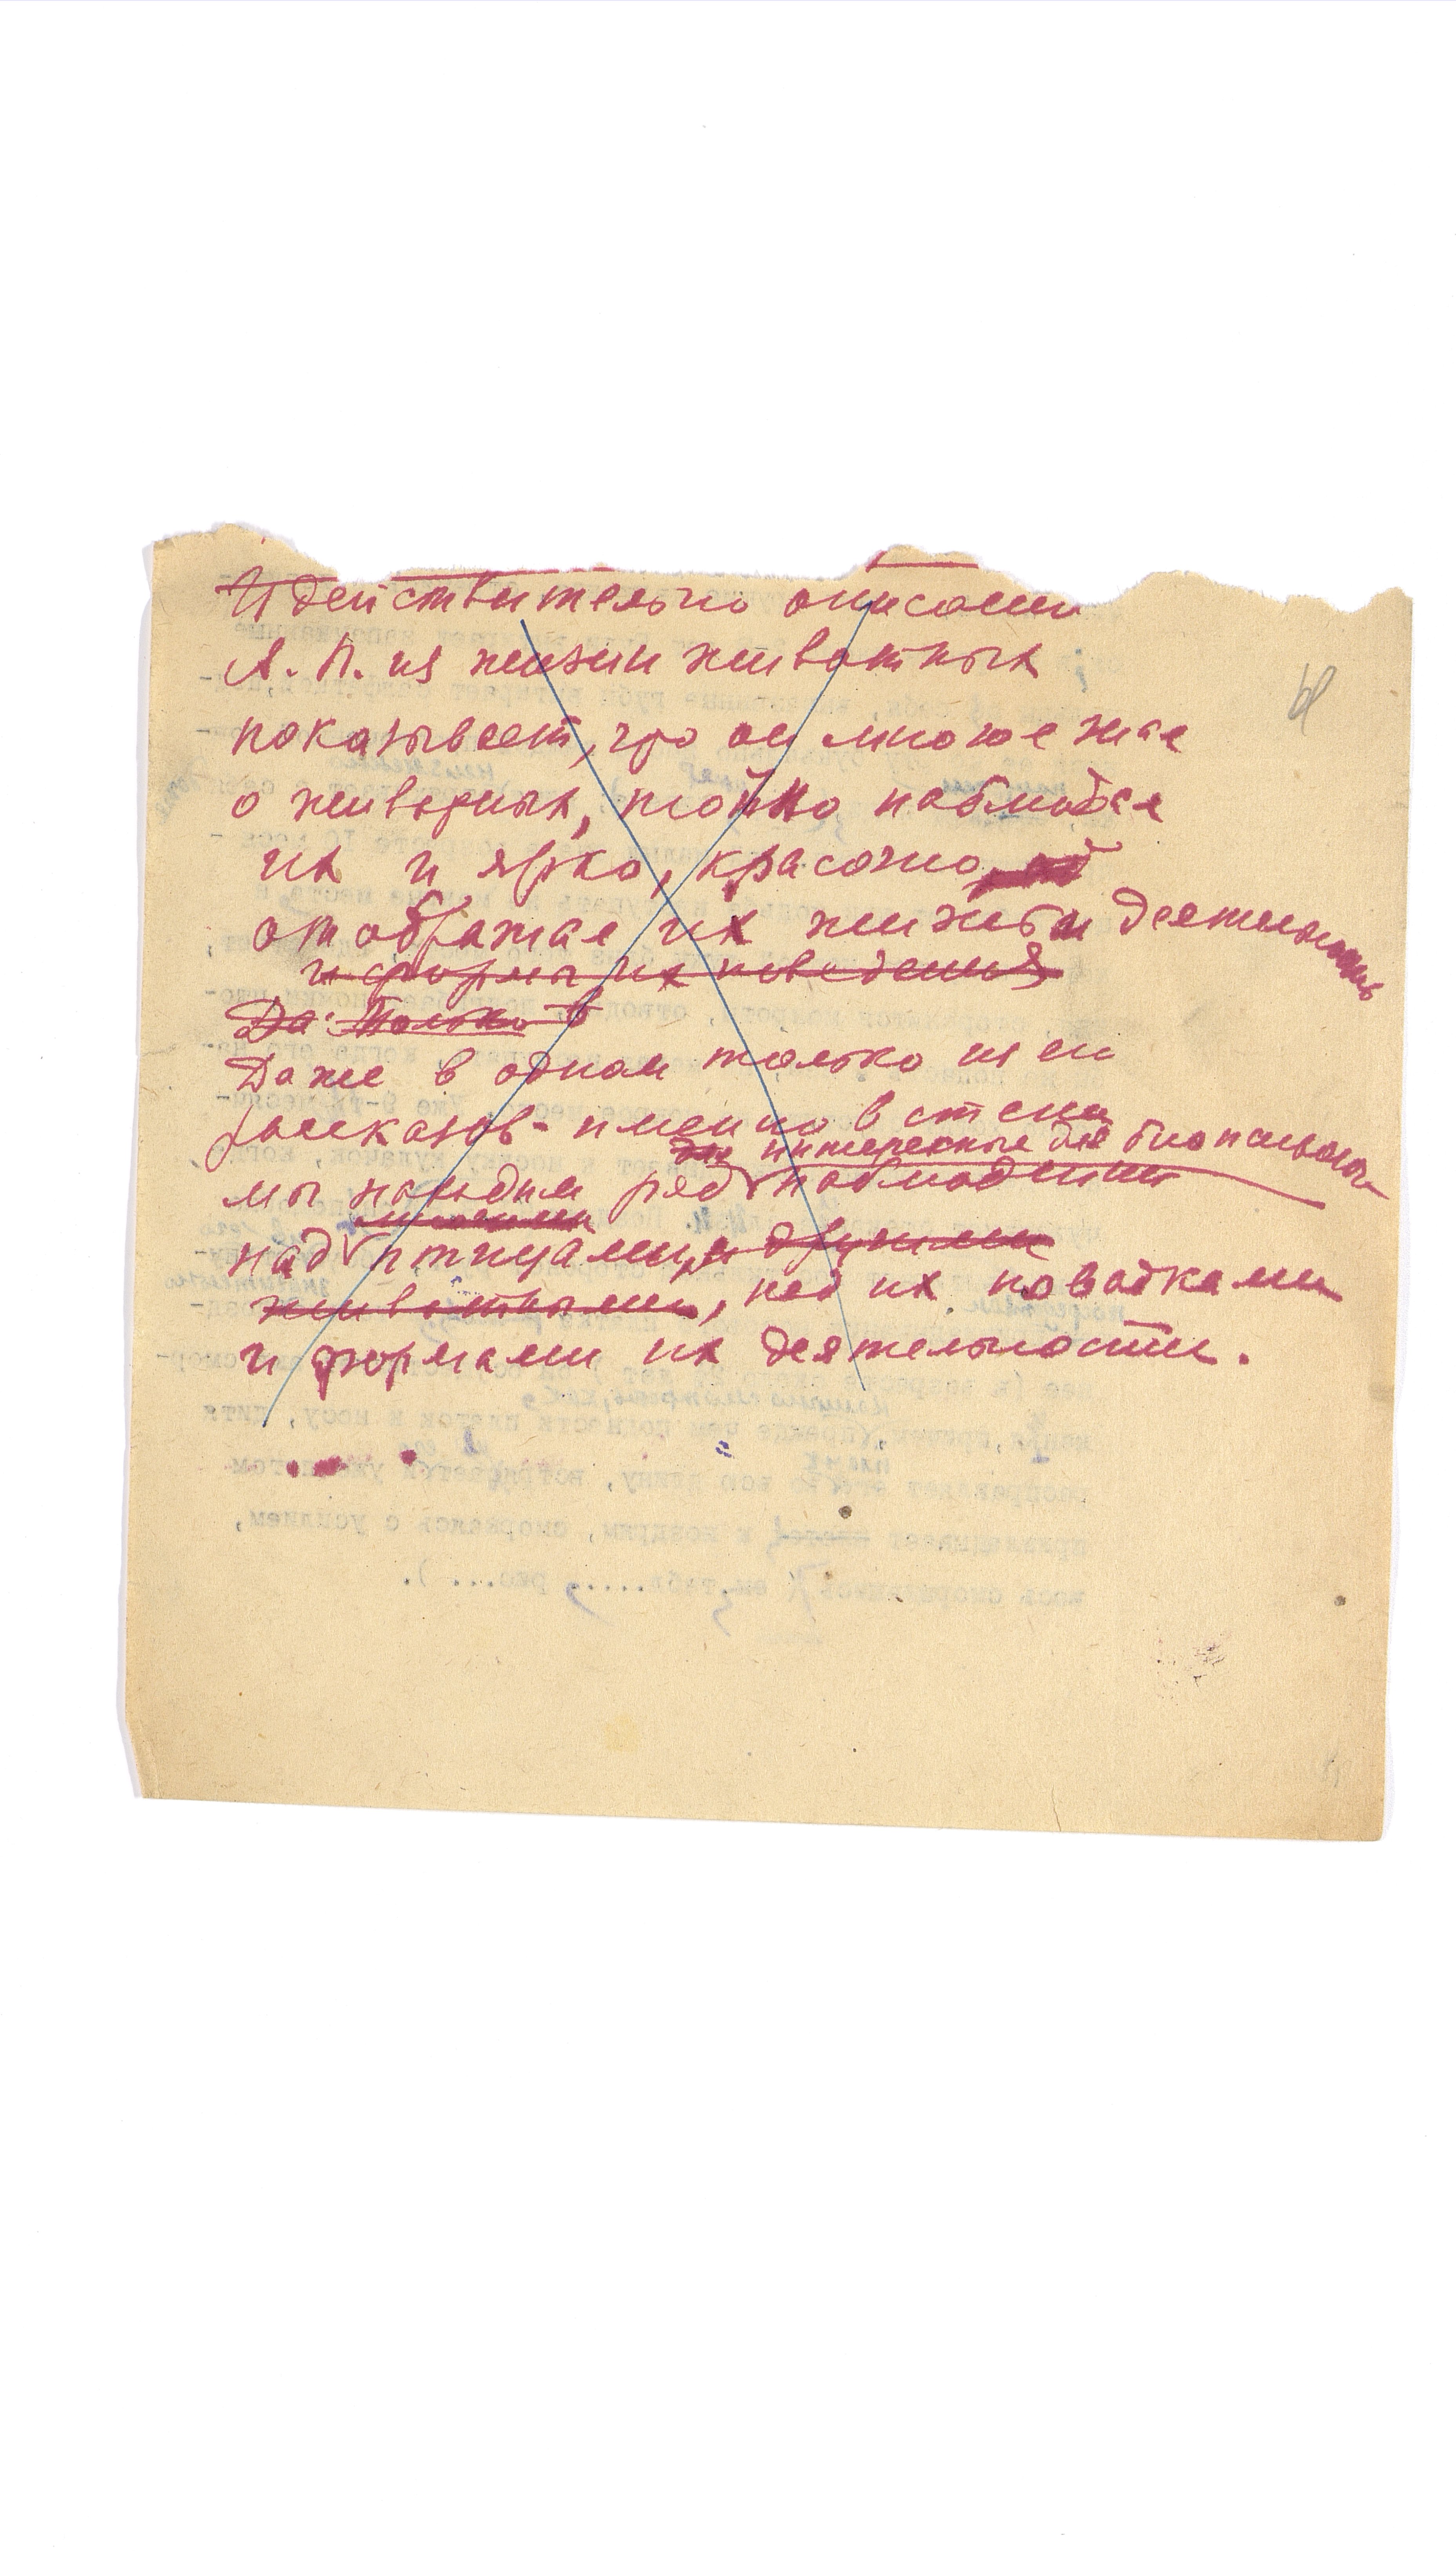 И действительно описания
А. П. из жизни животных
показывает, что он многое знае
о животных, точно наблюдае
их и ярко, красочно
отображае их жизнь и деятельность
и формы их поведения
Да. Только в
Даже в одном только из ег
рассказов - именно в степи
интересные для биопсихолога
мы находим ряд наблюдений
над птицами, и другими
животными, над их повадками
и формами их деятельности.